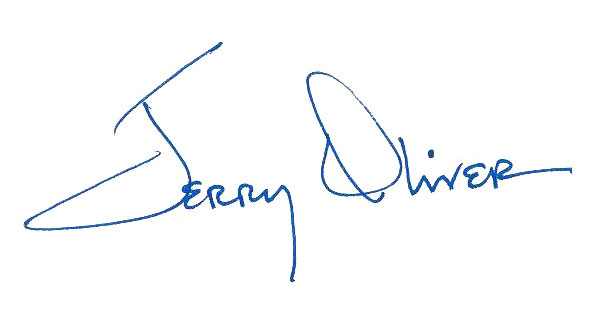 Jerry Oliver